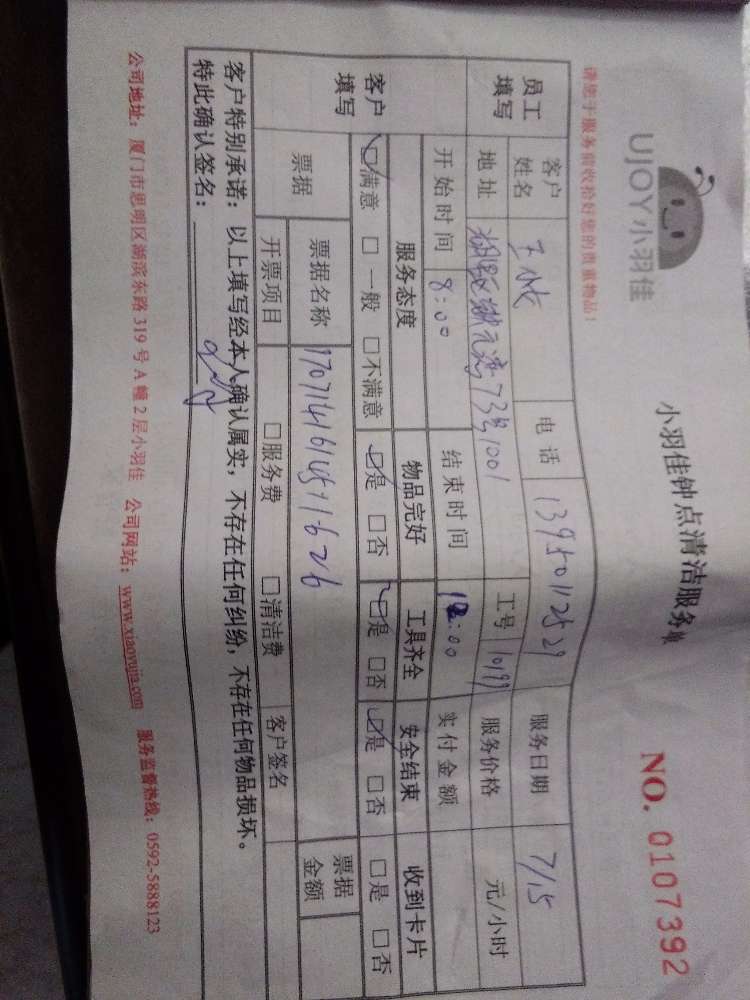 UJOY小羽佳
小羽佳钟点清洁服务单
NO. 0107392
请您于服务前收拾好您的贵重物品！
员工填写
客户姓名 电话 13950112529 服务日期 7/15
地址 73号1001 工号 10199 服务价格 元/小时
开始时间 8:00 结束时间 12:00 实付金额
客户填写
服务态度 物品完好 工具齐全 安全结束 收到卡片
☑满意 □一般 □不满意 ☑是 □否 ☑是 □否 ☑是 □否 □是 □否
票据 票据名称 票据金额
开票项目 □服务费 □清洁费 客户签名
客户特别承诺：以上填写经本人确认属实，不存在任何纠纷，不存在任何物品损坏。
特此确认签名：
公司地址：厦门市思明区湖滨东路319号A幢2层小羽佳 公司网站：www.xiaoyujia.com 服务监督热线：0592-5888123